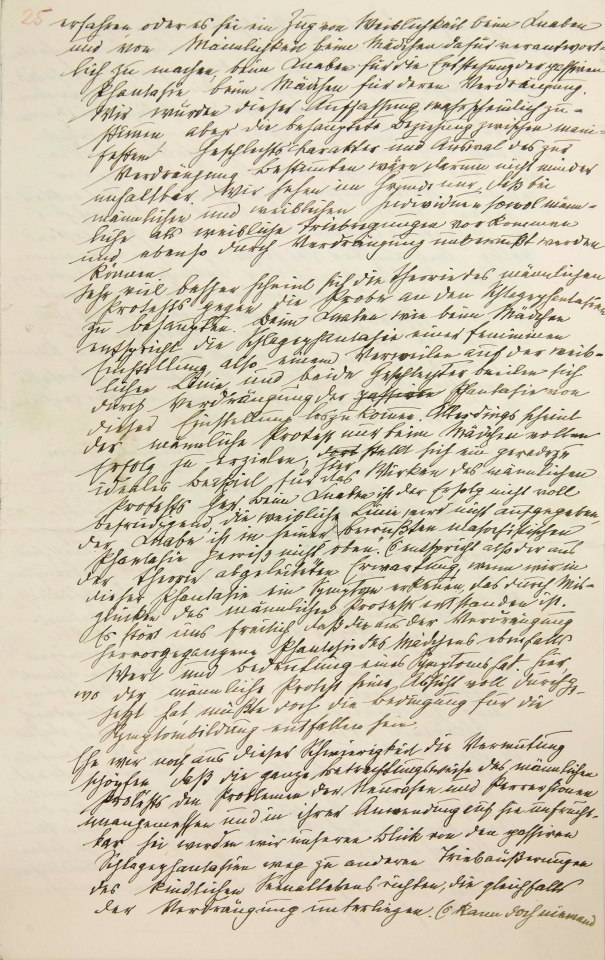 25 erfahren oder es sei ein Zug von Weiblichkeit beim Knaben
und von Männlichkeit beim Mädchen dafür verantwort-
lich zu machen, beim Knaben für die Entstehung der passiven
Phantasie beim Mädchen für deren Verdrängung.
Wir würden dieser Auffassung wahrscheinlich zu-
stimmen aber die behauptete Beziehung zwischen mani-
festem Geschlechtscharakter und Auswal des zur
Verdrängung Bestimten wäre darum nicht minder
unhaltbar. Wir sehen im Grunde nur, daß bei
männlichen und weiblichen Individuen sowol männ-
liche als weibliche Triebregungen vorkommen
und ebenso durch Verdrängung unbewußt werden
können.
Sehr viel besser scheint sich die Theorie des männlichen
Protests gegen die Probe an den Schlagephantasien
zu behaupten. Beim Knaben wie beim Mädchen
entspricht die Schlagephantasie einer femininen
Einstellung also einem Verweilen auf der weib-
lichen Linie, und beide Geschlechter beeilen sich
durch Verdrängung der Phantasie von
dieser Einstellung loszukomen. Allerdings scheint
der männliche Protest nur beim Mädchen vollen
Erfolg zu erzielen, hier stellt sich ein geradezu
ideales Beispiel für das Wirken des männlichen
Protests her. Beim Knaben ist der Erfolg nicht voll
befriedigend, die weibliche Linie wird nicht aufgegeben,
der Knabe ist in seiner bewußten masochistischen
Phantasie gewiß nicht oben. Es entspricht also der aus
der Theorie abgeleiteten Erwartung, wenn wir in
dieser Phantasie ein Symptom erkenen, das durch Mis-
glücken des männlichen Protests entstanden ist.
Es stört uns freilich daß die aus der Verdrängung
hervorgegangene Phantasie des Mädchens ebenfalls
Wert und Bedeutung eines Symptoms hat. hier
wo der männliche Protest seine Absicht voll durchge-
setzt hat müßte doch die Bedingung für die
Symptombildung entfallen sein.
Ehe wir noch aus dieser Schwierigkeit die Vermutung
schöpfen daß die ganze Betrachtungsweise des männlichen
Protests den Problemen der Neurosen und Perversionen
unangemessen und in ihrer Anwendung auf sie unfrucht-
bar sei werden wir unseren Blick von den passiven
Schlagephantasien weg zu anderen Triebäußerungen
des kindlichen Sexuallebens richten, die gleichfalls
der Verdrängung unterliegen. Es kann doch niemand